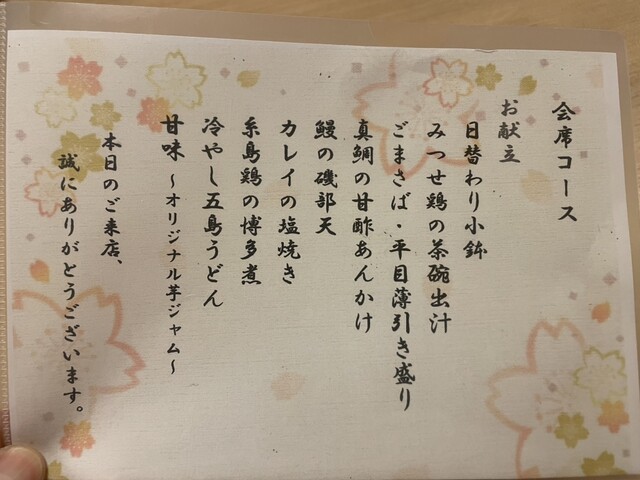 会席コース
お献立
日替わり小鉢
みつせ鶏の茶碗出汁
ごまさば・平目薄引き盛り
真鯛の甘酢あんかけ
鰻の磯部天
カレイの塩焼き
糸島鶏の博多煮
冷やし五島うどん
甘味 ～オリジナル芋ジャム～
本日のご来店、
誠にありがとうございます。